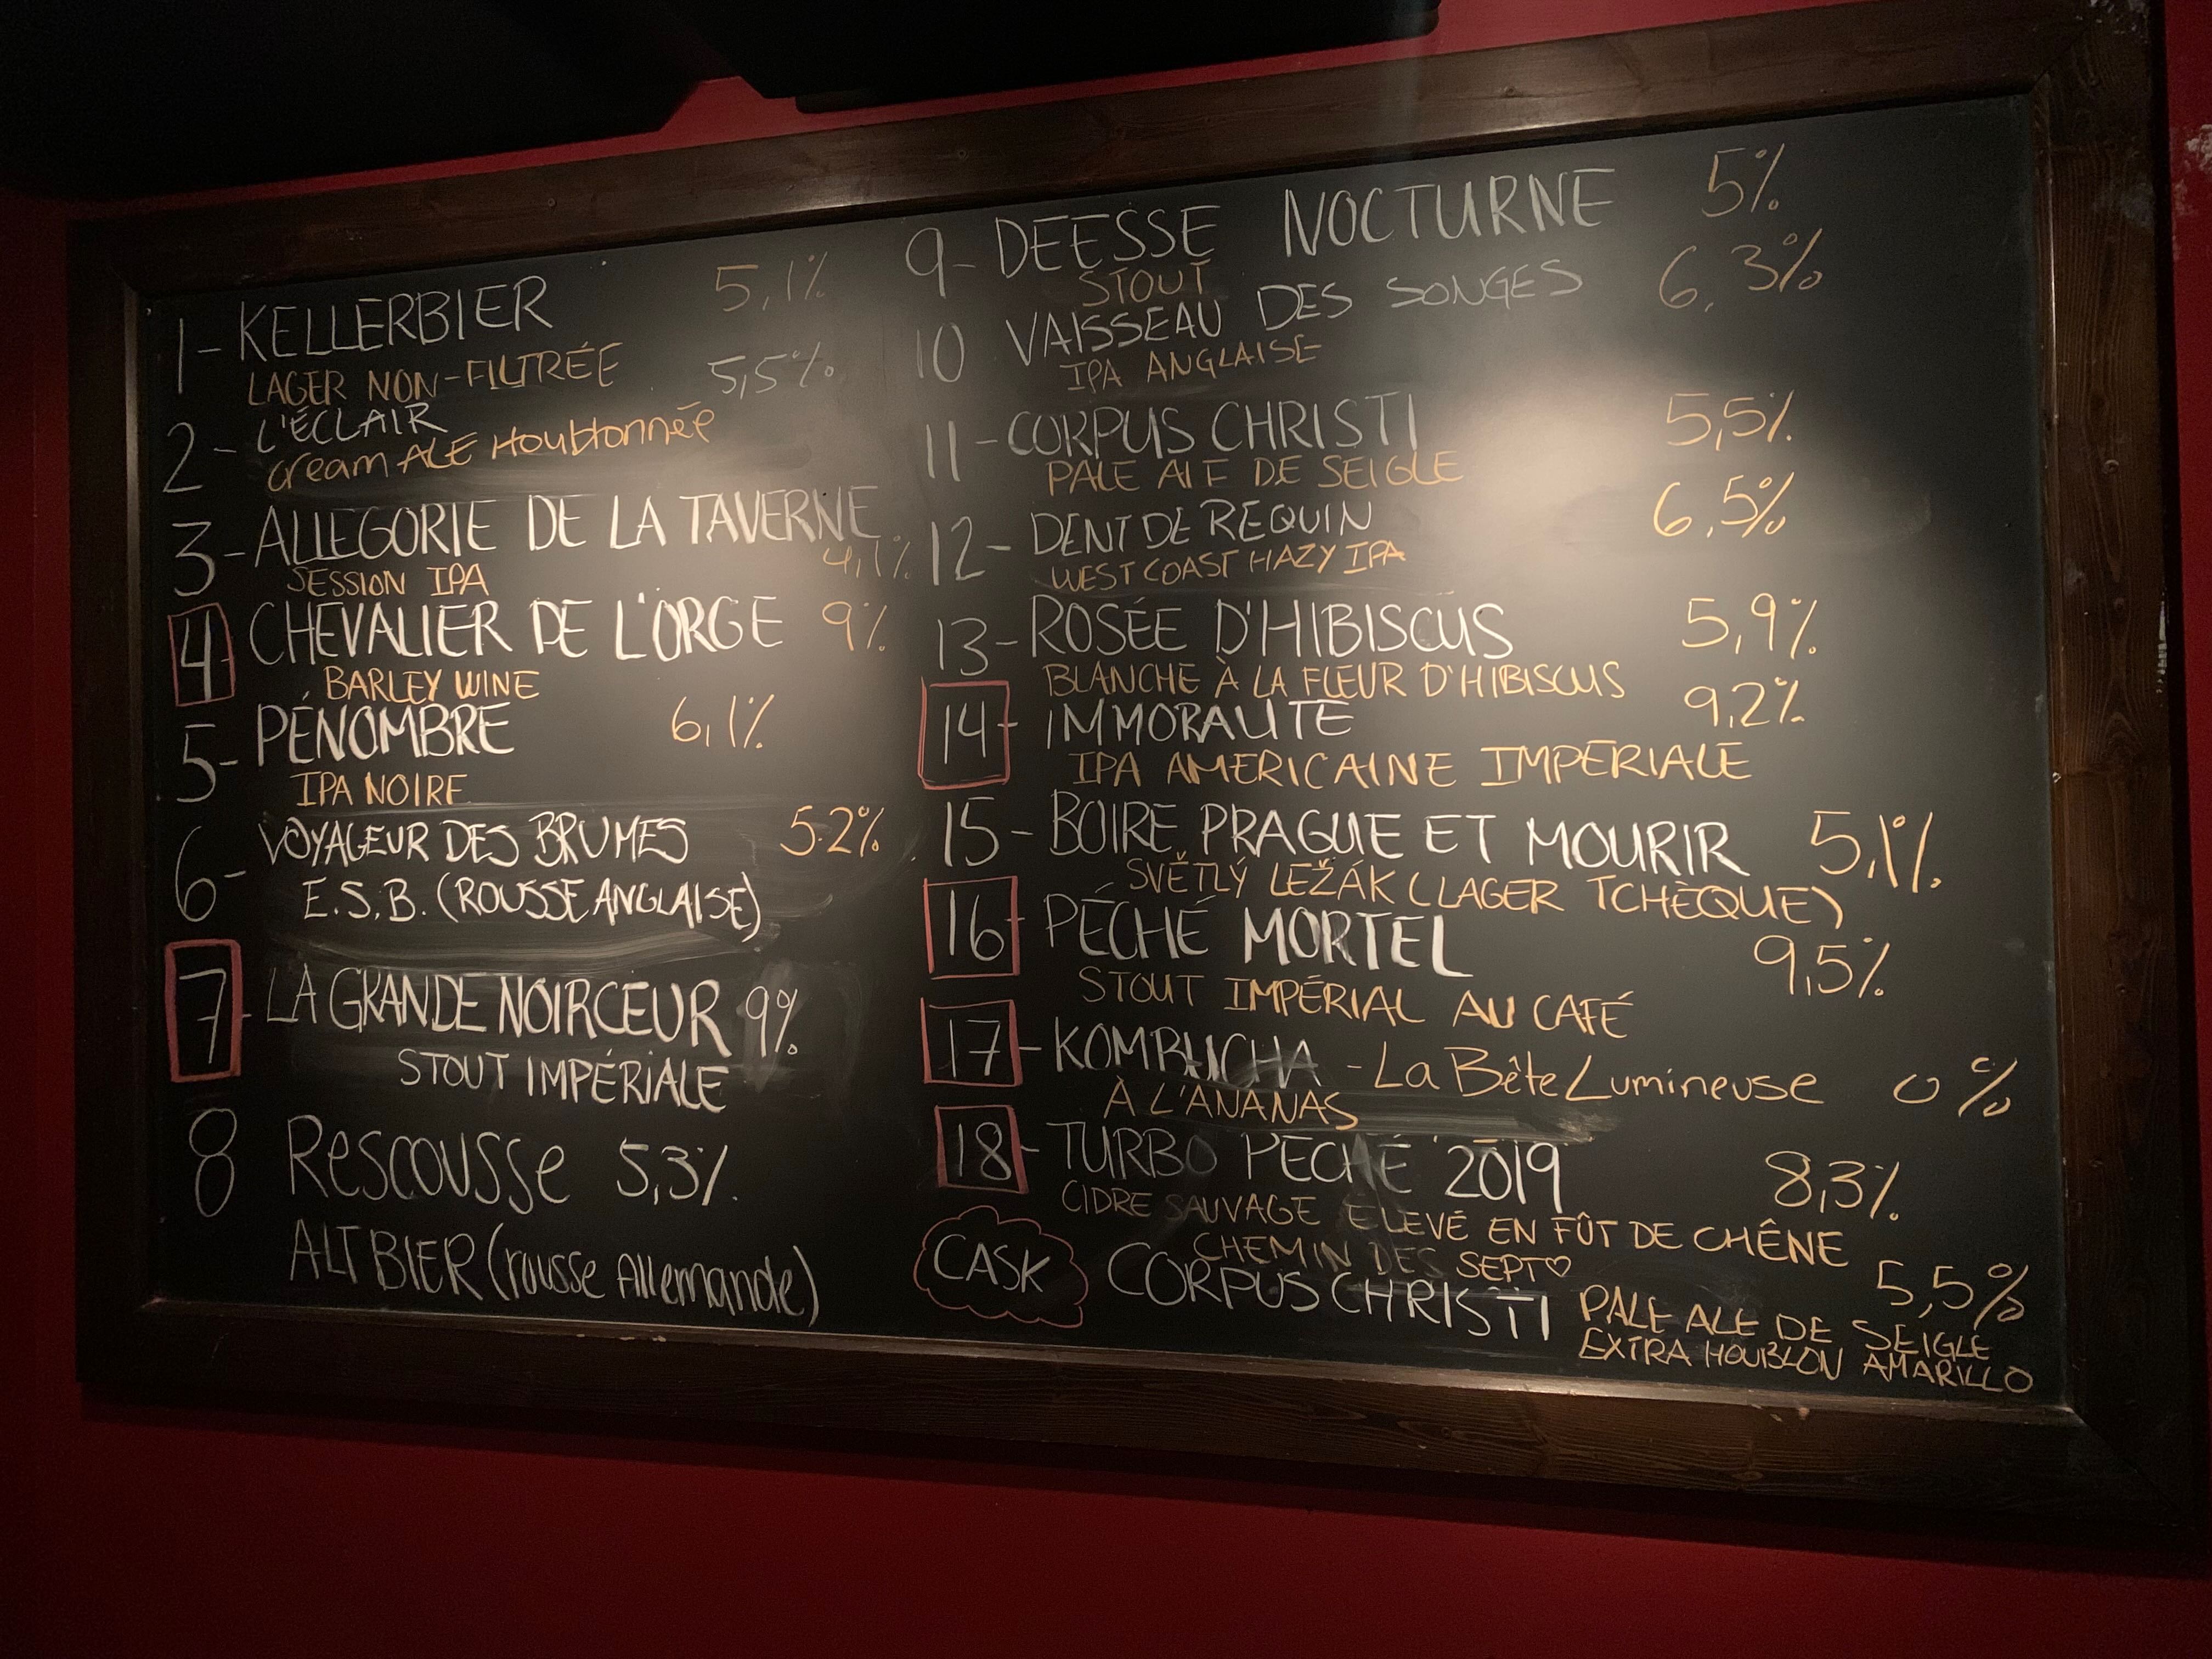 1- KELLERBIER 5,1%
LAGER NON-FILTRÉE
2- L'ÉCLAIR 5,5%
cream ALE Houblonnée
3- ALLEGORIE DE LA TAVERNE
SESSION IPA 4,1%
4- CHEVALIER DE L'ORGE 9%
BARLEY WINE
5- PÉNOMBRE 6,1%
IPA NOIRE
6- VOYAGEUR DES BRUMES 5.2%
E.S.B. (ROUSSE ANGLAISE)
7- LA GRANDE NOIRCEUR 9%
STOUT IMPÉRIALE
8 Rescousse 5,3%
ALTBIER (rousse Allemande)
9- DEESSE NOCTURNE 5%
STOUT
10 VAISSEAU DES SONGES 6,3%
IPA ANGLAISE
11- CORPUS CHRISTI 5,5%
PALE ALE DE SEIGLE
12- DENT DE REQUIN 6,5%
WEST COAST HAZY IPA
13- ROSÉE D'HIBISCUS 5,9%
BLANCHE À LA FLEUR D'HIBISCUS
14- IMMORALITÉ 9,2%
IPA AMERICAINE IMPERIALE
15- BOIRE PRAGUE ET MOURIR 5,1%
SVĚTLÝ LEŽÁK (LAGER TCHÈQUE)
16- PÉCHÉ MORTEL 9,5%
STOUT IMPÉRIAL AU CAFÉ
17- KOMBUCHA - La Bête Lumineuse 0%
À L'ANANAS
18- TURBO PÉCHÉ 2019 8,3%
CIDRE SAUVAGE ELEVÉ EN FÛT DE CHÊNE
CHEMIN DES SEPT ♡
CASK CORPUS CHRISTI 5,5%
PALE ALE DE SEIGLE
EXTRA HOUBLON AMARILLO